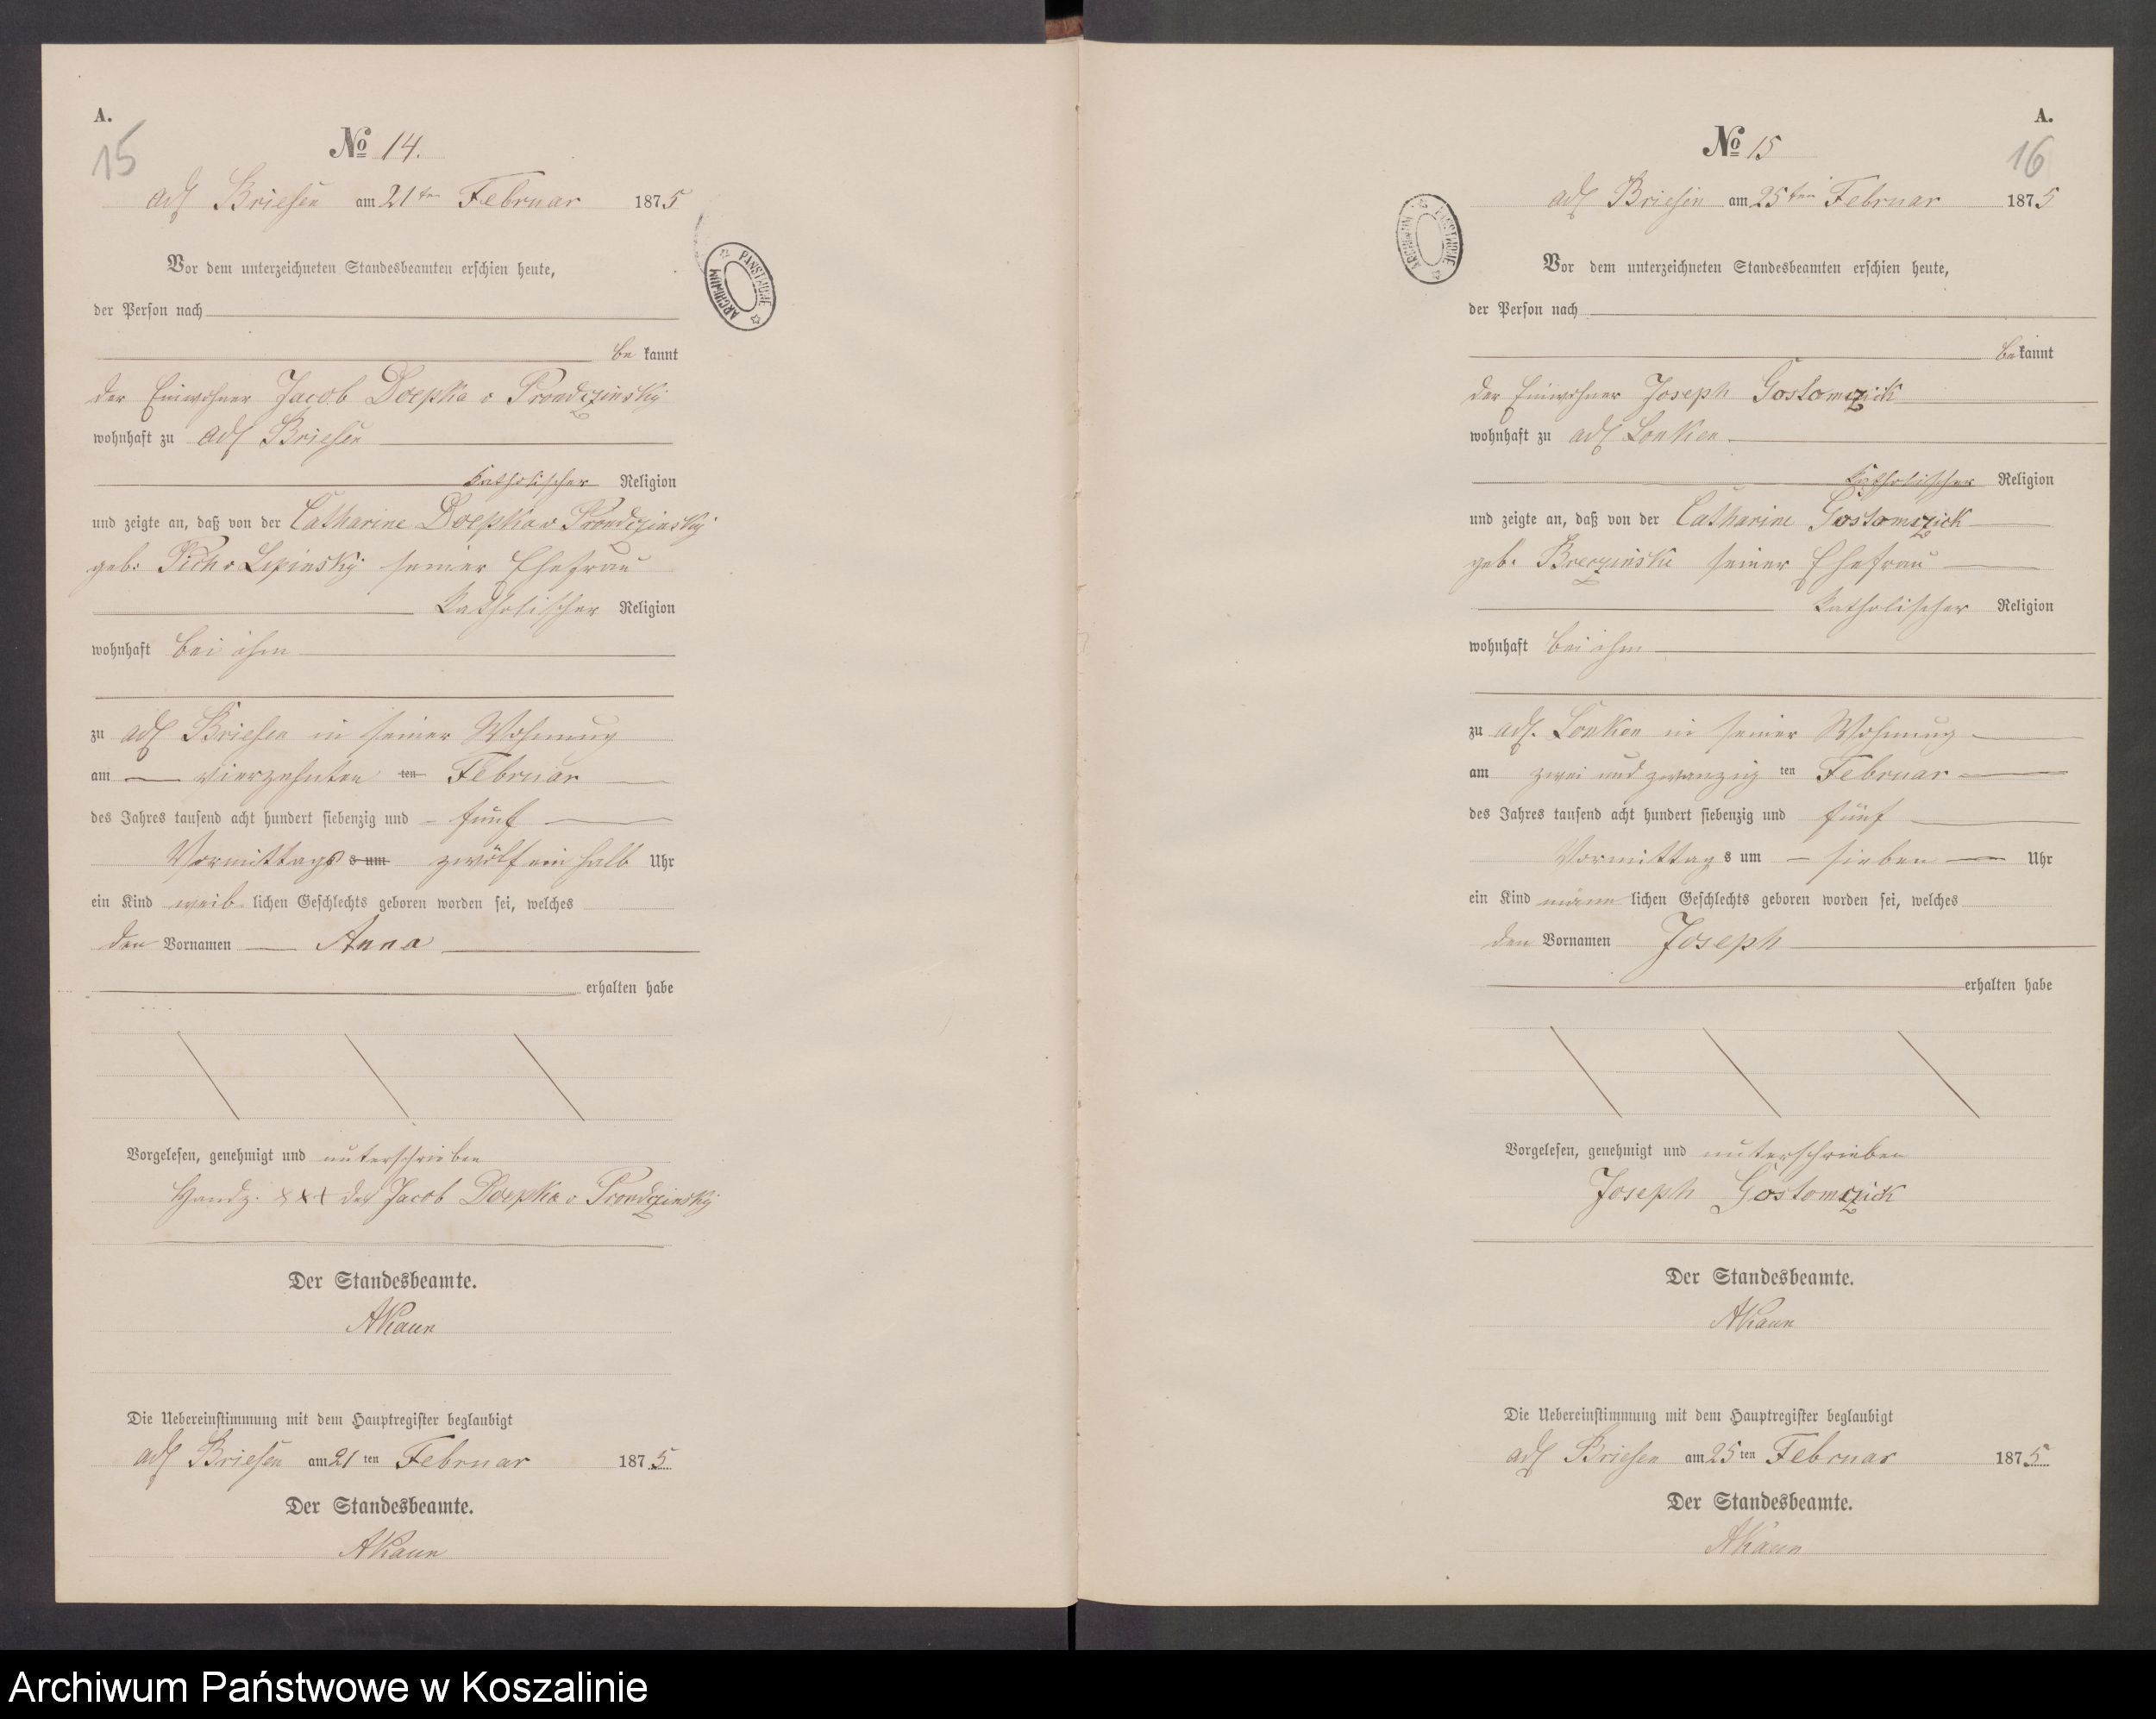 A.
15
№ 14.
adl Briesen am 21ten Februar 1875
Vor dem unterzeichneten Standesbeamten erschien heute,
der Person nach
bekannt
der Einwohner Jacob Doepka v Prondzinsky
wohnhaft zu adl Briesen
katholischer Religion
und zeigte an, daß von der Catharine Doepka v Prondzinsky
geb. Pich v Lipinsky seiner Ehefrau
katholischer Religion
wohnhaft bei ihm
zu adl Briesen in seiner Wohnung
am vierzehnten ten Februar
des Jahres tausend acht hundert siebenzig und fünf
Vormittags s um zwölf ein halb Uhr
ein Kind weiblichen Geschlechts geboren worden sei, welches
den Vornamen Anna
erhalten habe
Vorgelesen, genehmigt und unterschrieben
Handz. xxx des Jacob Doepka v Prondzinsky
Der Standesbeamte.
AKaun
Die Uebereinstimmung mit dem Hauptregister beglaubigt
adl Briesen am 21ten Februar 1875
Der Standesbeamte.
AKaun
ARCHIWUM PAŃSTWOWE
A.
16
№ 15
adl Briesen am 25ten Februar 1875
Vor dem unterzeichneten Standesbeamten erschien heute,
der Person nach
bekannt
der Einwohner Joseph Gostomzick
wohnhaft zu adl Lonken
katholischer Religion
und zeigte an, daß von der Catharine Gostomzick
geb. Breczinski seiner Ehefrau
katholischer Religion
wohnhaft bei ihm
zu adl. Lonken in seiner Wohnung
am zwei und zwanzigten Februar
des Jahres tausend acht hundert siebenzig und fünf
Vormittags um sieben Uhr
ein Kind männlichen Geschlechts geboren worden sei, welches
den Vornamen Joseph
erhalten habe
Vorgelesen, genehmigt und unterschrieben
Joseph Gostomzick
Der Standesbeamte.
AKaun
Die Uebereinstimmung mit dem Hauptregister beglaubigt
adl Briesen am 25ten Februar 1875
Der Standesbeamte.
AKaun
ARCHIWUM PAŃSTWOWE
Archiwum Państwowe w Koszalinie